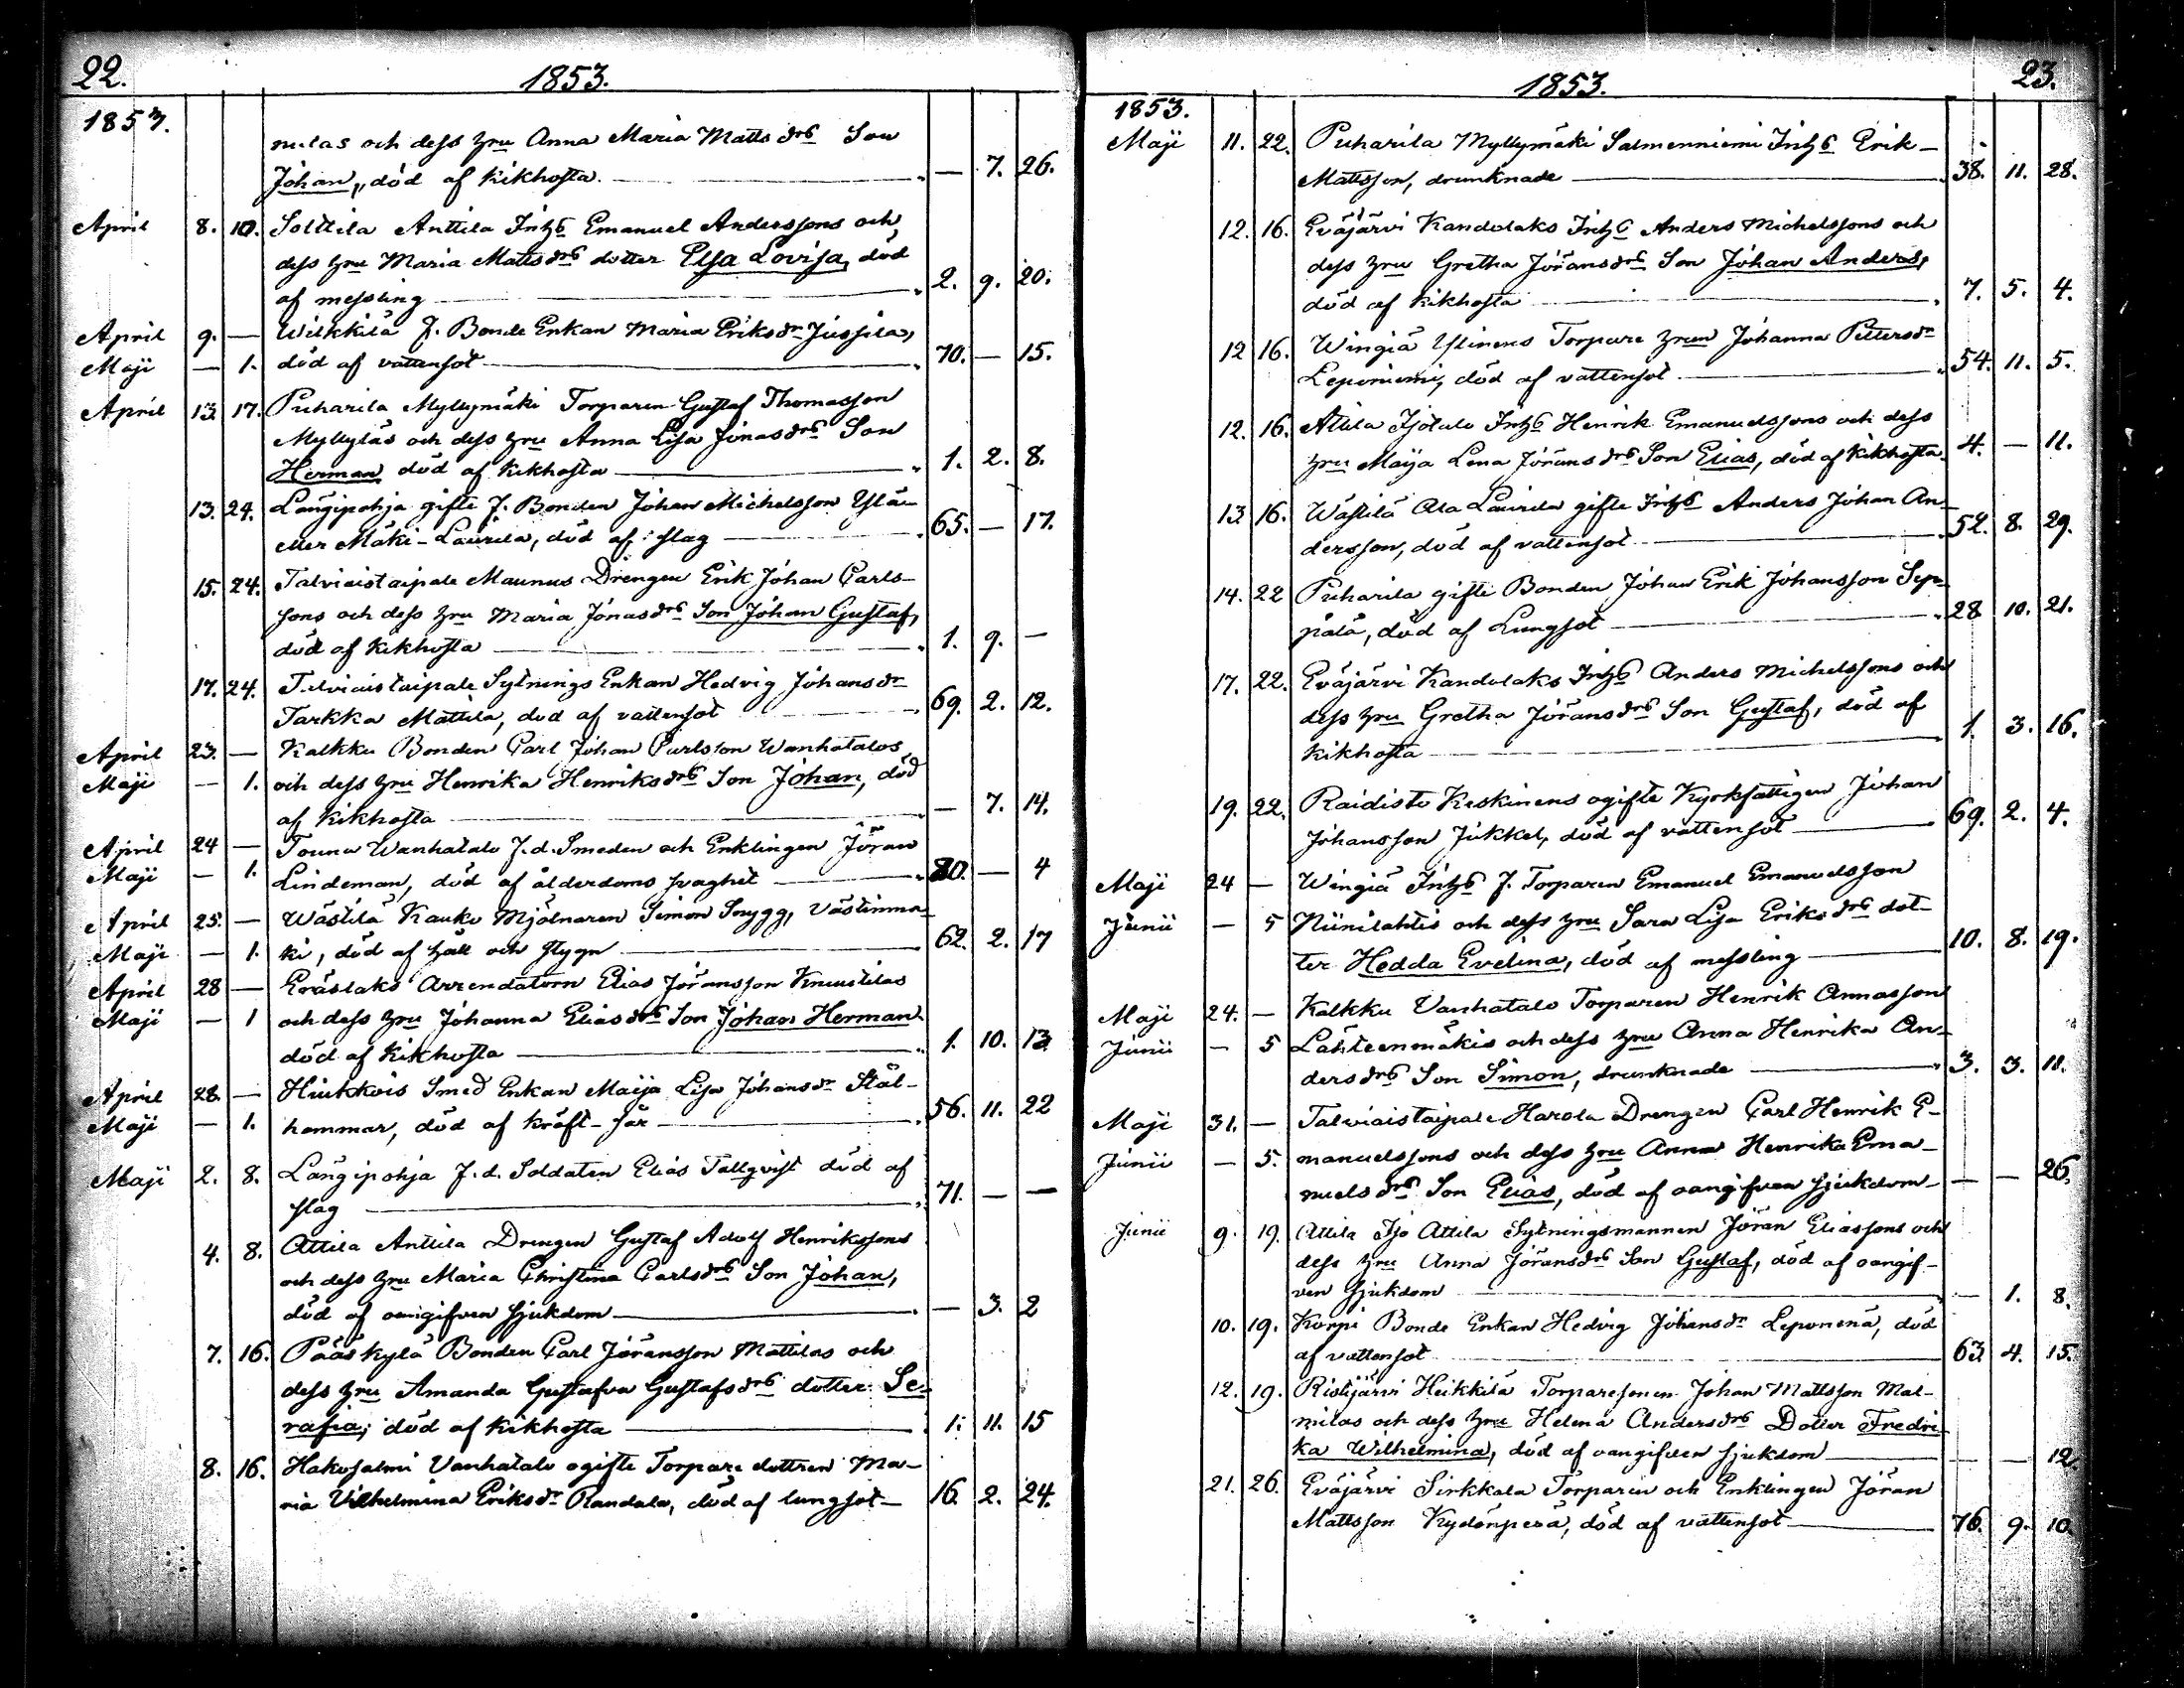 22.
1853.
1853.
nulas och dess hru Anna Maria Matts drs Son
Johan, död af kikhosta. — 7. 26.
April 8. 10. Solttila Anttila Inhs Emanuel Anderssons och
dess hru Maria Matts drs dotter Elsa Lovisa, död
af messling 2. 9. 20.
April 9. — Wilkkilä f. Bonde Enkan Maria Eriks dr Jussila,
Maji — 1. död af vattensot 70. — 15.
April 13. 17. Puharila Myllymäki Torparen Gustaf Thomasson
Myllyläs och dess hru Anna Lisa Jonas drs Son
Herman död af kikhosta 1. 2. 8.
13. 24. Längipohja gifte f. Bonden Johan Michelsson Yslä-
eller Mäki-Laurila, död af slag 65. — 17.
15. 24. Talviaistaipale Maunus Drengen Erik Johan Carls-
sons och dess hru Maria Jonas drs Son Johan Gustaf,
död af kikhosta 1. 9. —
17. 24. Talviaistaipale Sytnings Enkan Hedvig Johans dr
Tarkka Mattila, död af vattensot 69. 2. 12.
April 23. — Kalkku Bonden Carl Johan Carlsson Wanhatalos
Maji — 1. och dess hru Henrika Henriks drs Son Johan, död
af kikhosta — 7. 14.
April 24 — Touna Wanhatalo f. d. Smeden och Enklingen Jöran
Maji — 1. Lindeman, död af ålderdoms svaghet 80. — 4
April 25. — Wästilä Kauko Mjölnaren Simon Snygg, Västinma
Maji — 1. ki, död af håll och stygn 62. 2. 17
April 28 — Eräslaks Arrendatorn Elias Jöransson Knuutilas
Maji — 1 och dess hru Johanna Elias drs Son Johan Herman
död af kikhosta 1. 10. 13
April 28. — Hiukkois Smed Enkan Maija Lisa Johans dr Stål-
Maji — 1. hammar, död af kräft-sår 56. 11. 22
Maji 2. 8. Längipohja f. d. Soldaten Elias Tallqvist död af
slag 71. — —
4. 8. Attila Anttila Drengen Gustaf Adolf Henrikssons
och dess hru Maria Christina Carls drs Son Johan,
död af oangifven sjukdom — 3. 2
7. 16. Pääskylä Bonden Carl Jöransson Mattilas och
dess hru Amanda Gustafva Gustafs drs dotter Se-
rafia, död af kikhosta 1. 11. 15
8. 16. Hakosalmi Vanhatalo ogifte Torpare dottren Ma-
ria Vilhelmina Eriks dr Randala, död af lungsot 16. 2. 24.
23.
1853.
1853.
Maji 11. 22. Puharila Myllymäki Salmenniemi Inhs Erik
Mattsson, drunknade 38. 11. 28.
12. 16. Eväjärvi Kandolaks Inhs Anders Michelssons och
dess hru Gretha Jörans drs Son Johan Anders,
död af kikhosta 7. 5. 4.
12 16. Wingiä Ylinens Torpare hrun Johanna Petters dr
Leponiemi, död af vattensot 54. 11. 5.
12. 16. Attila Isotalo Inhs Henrik Emanuelssons och dess
hru Maija Lena Jörans drs Son Elias, död af kikhosta 4. — 11.
13. 16. Wästilä Ala Laurila gifte Inhs Anders Johan An-
dersson, död af vattensot 52. 8. 29.
14. 22 Puharila gifte Bonden Johan Erik Johansson Sep-
pälä, död af Lungsot 28 10. 21.
17. 22. Eväjärvi Kandolaks Inhs Anders Michelssons och
dess hru Gretha Jörans drs Son Gustaf, död af
kikhosta 1. 3. 16.
19. 22. Raidisto Keskinens ogifte Kyrkfattigen Johan
Johansson Jukkel, död af vattensot 69. 2. 4.
Maji 24 — Wingiä Inhs f. Torparen Emanuel Emanuelsson
Junii — 5 Niinilahtis och dess hru Sara Lisa Eriks drs dot-
ter Hedda Evelina, död af messling 10. 8. 19.
Maji 24. — Kalkku Vanhatalo Torparen Henrik Annasson
Junii — 5 Lähteenmäkis och dess hru Anna Henrika An-
ders drs Son Simon, drunknade 3. 3. 11.
Maji 31. — Talviaistaipale Harola Drengen Carl Henrik E-
Junii — 5. manuelssons och dess hru Anna Henrika Ema-
nuels drs Son Elias, död af oangifven sjukdom — — 26.
Junii 9. 19. Attila Iso Attila Sytningsmannen Jöran Eliassons och
dess hru Anna Jörans drs Son Gustaf, död af oangif-
ven sjukdom — 1. 8.
10. 19. Korpi Bonde Enkan Hedvig Johans dr Leponenä, död
af vattensot 63. 4. 15.
12. 19. Ristijärvi Heikkilä Torparesonen Johan Mattsson Mat-
milas och dess hru Helena Anders drs Dotter Fredri-
ka Wilhelmina, död af oangifven sjukdom — — 12.
21. 26. Eväjärvi Sirkkala Torparen och Enklingen Jöran
Mattsson Kydönperä, död af vattensot 76. 9. 10.